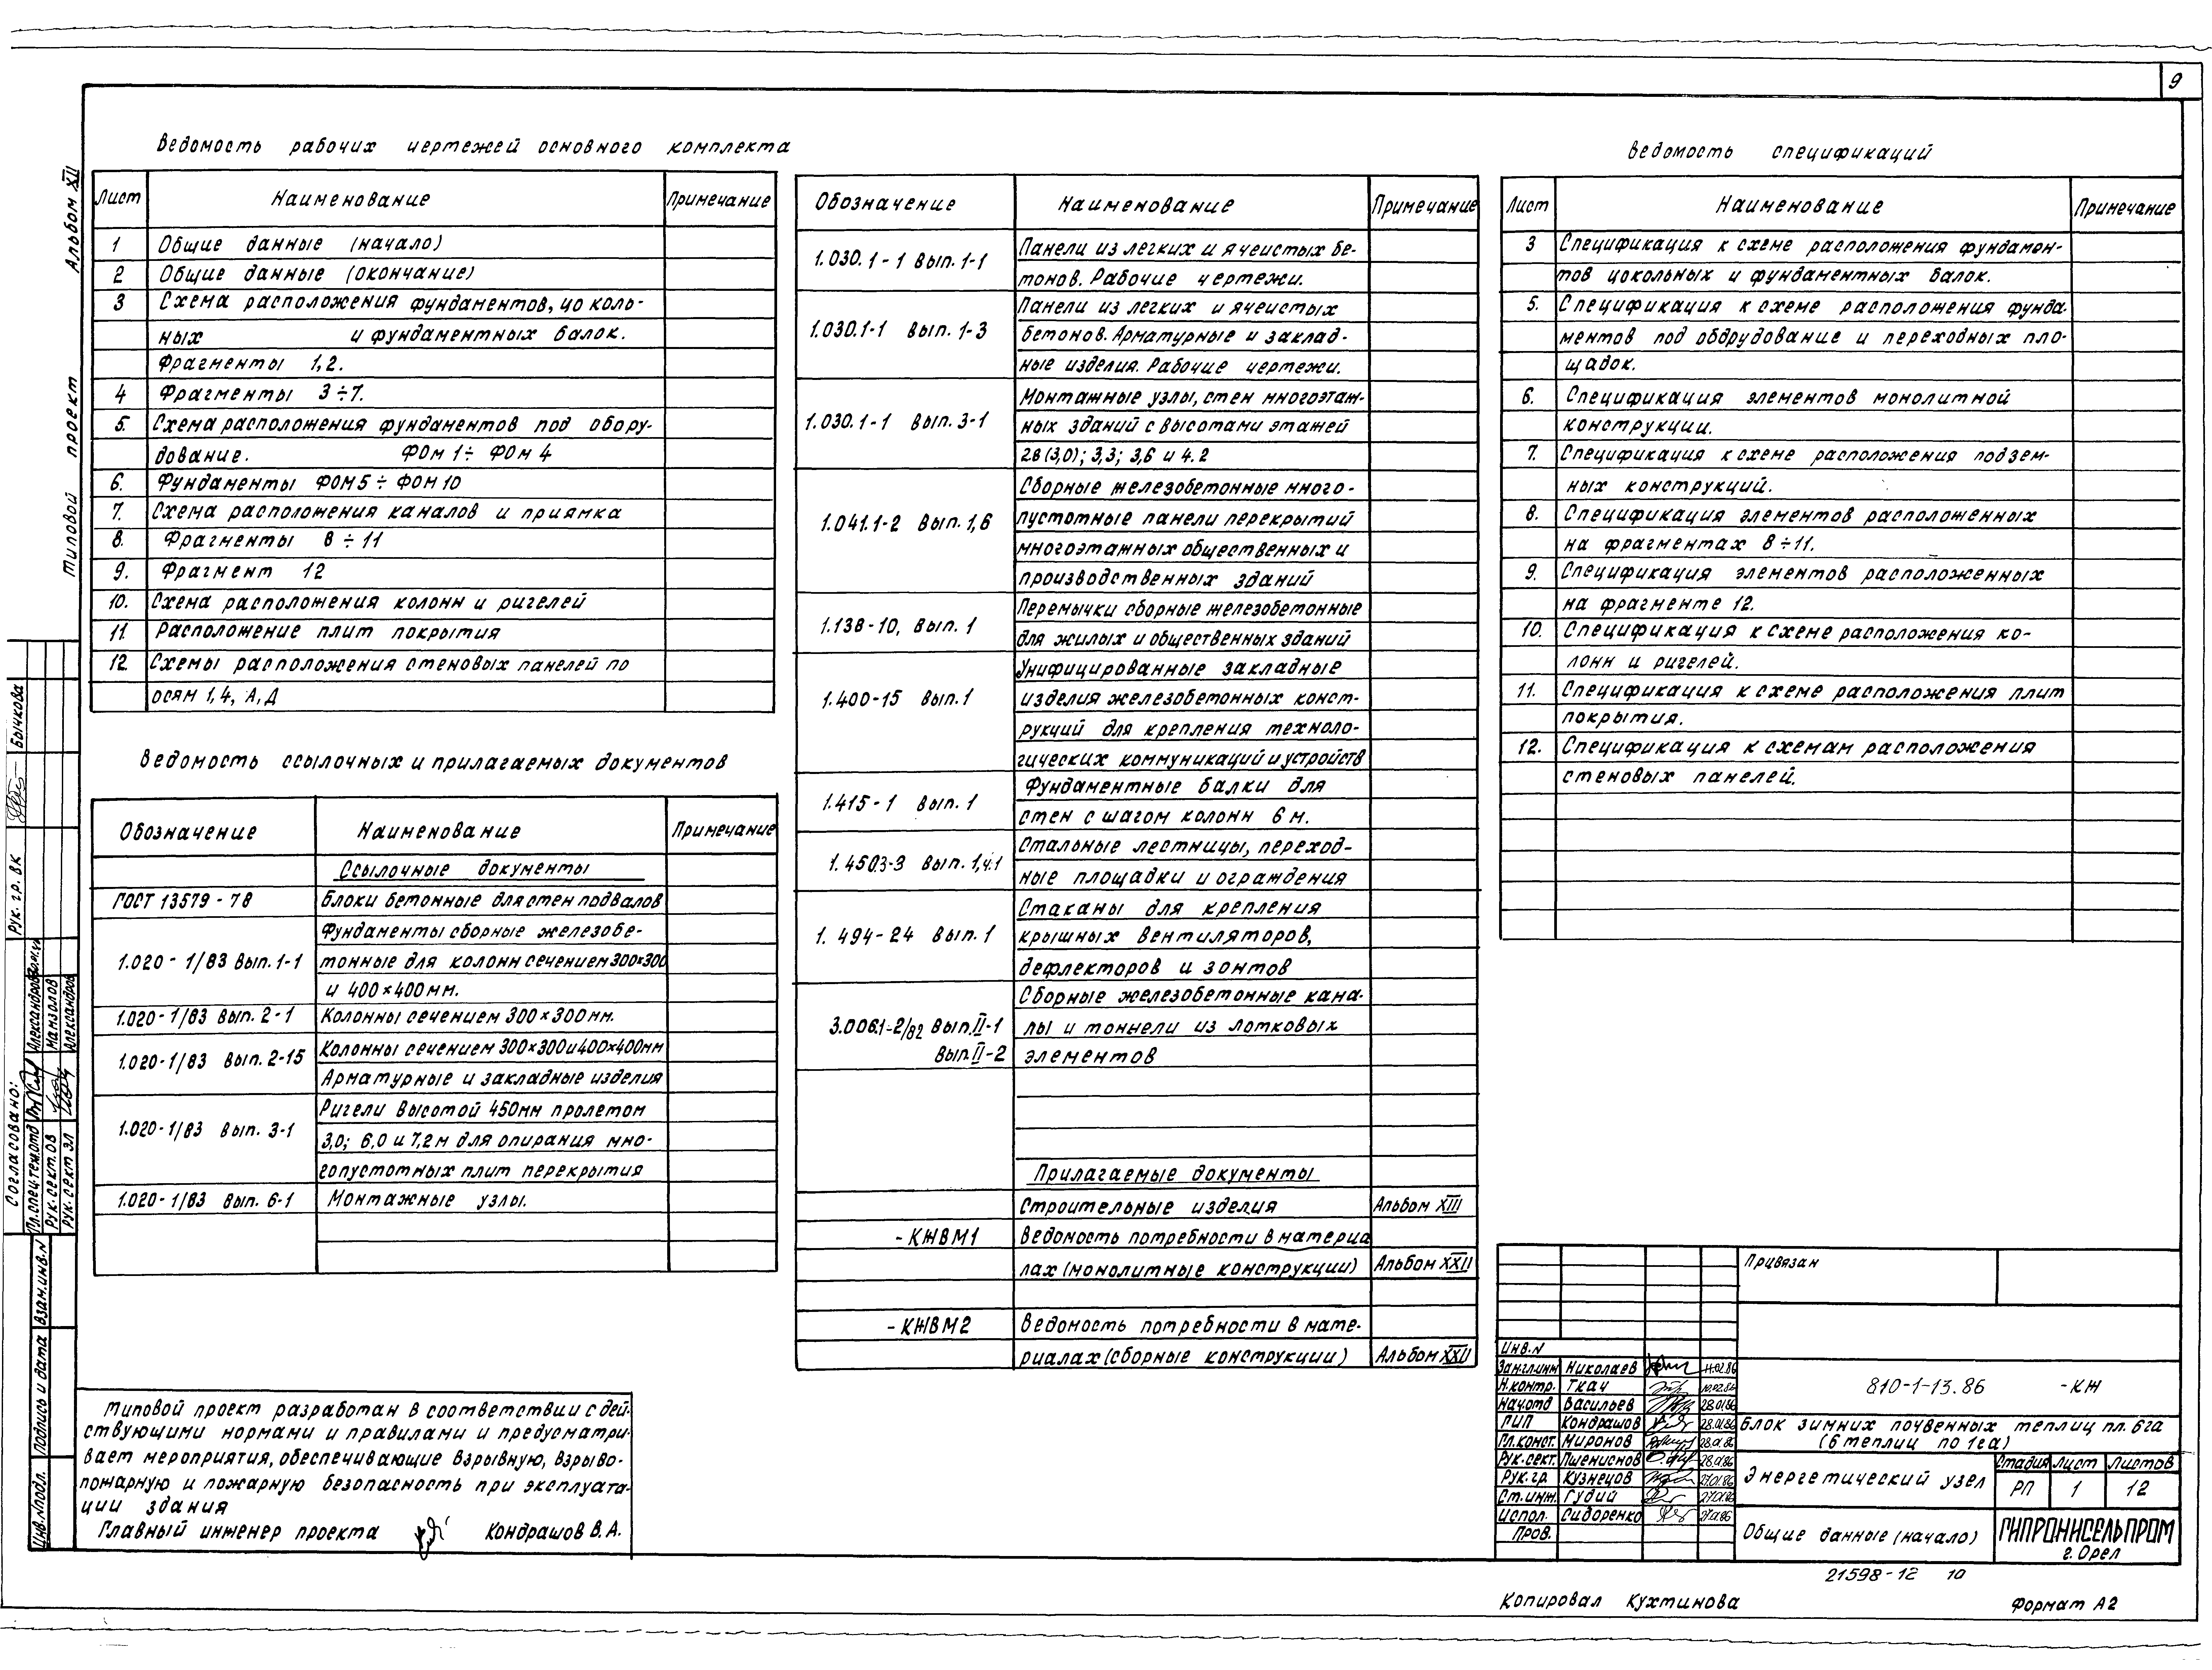 9
Альбом XII
типовой проект
Ведомость рабочих чертежей основного комплекта
Лист Наименование Примечание
1 Общие данные (начало)
2 Общие данные (окончание)
3 Схема расположения фундаментов, цоколь-
ных и фундаментных балок.
Фрагменты 1,2.
4 Фрагменты 3÷7.
5. Схема расположения фундаментов под обору-
дование. ФОм 1÷ ФОм 4
6. Фундаменты ФОМ5 ÷ ФОМ10
7. Схема расположения каналов и приямка
8. Фрагменты 8 ÷ 11
9. Фрагмент 12
10. Схема расположения колонн и ригелей
11. Расположение плит покрытия
12. Схемы расположения стеновых панелей по
осям 1,4, А,Д
Ведомость ссылочных и прилагаемых документов
Обозначение Наименование Примечание
Ссылочные документы
ГОСТ 13579-78 Блоки бетонные для стен подвалов
Фундаменты сборные железобе-
1.020-1/83 Вып. 1-1 тонные для колонн сечением 300×300
и 400×400мм.
1.020-1/83 Вып. 2-1 Колонны сечением 300×300мм.
1.020-1/83 Вып. 2-15 Колонны сечением 300×300 и 400×400мм
Арматурные и закладные изделия
Ригели высотой 450мм пролетом
1.020-1/83 Вып. 3-1 3,0; 6,0 и 7,2м для опирания мно-
гопустотных плит перекрытия
1.020-1/83 Вып. 6-1 Монтажные узлы.
Обозначение Наименование Примечание
1.030.1-1 Вып. 1-1 Панели из легких и ячеистых бе-
тонов. Рабочие чертежи.
Панели из легких и ячеистых
1.030.1-1 Вып. 1-3 бетонов. Арматурные и заклад-
ные изделия. Рабочие чертежи.
Монтажные узлы, стен многоэтаж-
1.030.1-1 Вып. 3-1 ных зданий с высотами этажей
28(3,0); 3,3; 3,6 и 4.2
Сборные железобетонные много-
1.041.1-2 Вып. 1,6 пустотные панели перекрытий
многоэтажных общественных и
производственных зданий
1.138-10, Вып. 1 Перемычки сборные железобетонные
для жилых и общественных зданий
Унифицированные закладные
1.400-15 Вып.1 изделия железобетонных конст-
рукций для крепления техноло-
гических коммуникаций и устройств
1.415-1 Вып. 1 Фундаментные балки для
стен с шагом колонн 6 м.
1.450.3-3 Вып. 1,ч.1 Стальные лестницы, переход-
ные площадки и ограждения
Стаканы для крепления
1.494-24 Вып. 1 крышных вентиляторов,
дефлекторов и зонтов
Сборные железобетонные кана-
3.006.1-2/82 Вып.II-1 лы и тоннели из лотковых
Вып.II-2 элементов
Прилагаемые документы
Строительные изделия Альбом XIII
-КЖВМ1 Ведомость потребности в материа
лах (монолитные конструкции) Альбом XXII
-КЖВМ2 Ведомость потребности в мате-
риалах (сборные конструкции) Альбом XXII
Ведомость спецификаций
Лист Наименование Примечание
3 Спецификация к схеме расположения фундамен-
тов цокольных и фундаментных балок.
5. Спецификация к схеме расположения фунда-
ментов под оборудование и переходных пло-
щадок.
6. Спецификация элементов монолитной
конструкции.
7. Спецификация к схеме расположения подзем-
ных конструкций.
8. Спецификация элементов расположенных
на фрагментах 8÷11.
9. Спецификация элементов расположенных
на фрагменте 12.
10. Спецификация к схеме расположения ко-
лонн и ригелей.
11. Спецификация к схеме расположения плит
покрытия.
12. Спецификация к схемам расположения
стеновых панелей.
Типовой проект разработан в соответствии с дей-
ствующими нормами и правилами и предусматри-
вает мероприятия, обеспечивающие взрывную, взрыво-
пожарную и пожарную безопасность при эксплуата-
ции здания
Главный инженер проекта Кондрашов В.А.
Согласовано:
Гл.спец.тем.отд Александров
Рук.сект.ОВ Манзолов
Рук.сект.ЭЛ Александров
Рук. гр. ВК Бычкова
Инв.№подл. Подпись и дата Взам.инв.№
Привязан
Инв.№
Зам.гл.инж Николаев 11.02.86
Н.контр. Ткач 10.02.86
Нач.отд Васильев 28.01.86
ГИП Кондрашов 28.01.86
Гл.конст. Миронов 28.01.86
Рук.сект. Пшениснов 28.01.86
Рук.гр. Кузнецов 27.01.86
Ст.инж. Гудий 27.01.86
Испол. Сидоренко 27.01.86
Пров.
810-1-13.86 -КЖ
Блок зимних почвенных теплиц пл. 6га
(6 теплиц по 1га)
Энергетический узел
Стадия Лист Листов
РП 1 12
Общие данные (начало)
ГИПРОНИСЕЛЬПРОМ
г. Орел
21598-12 10
Копировал Кухтинова Формат А2